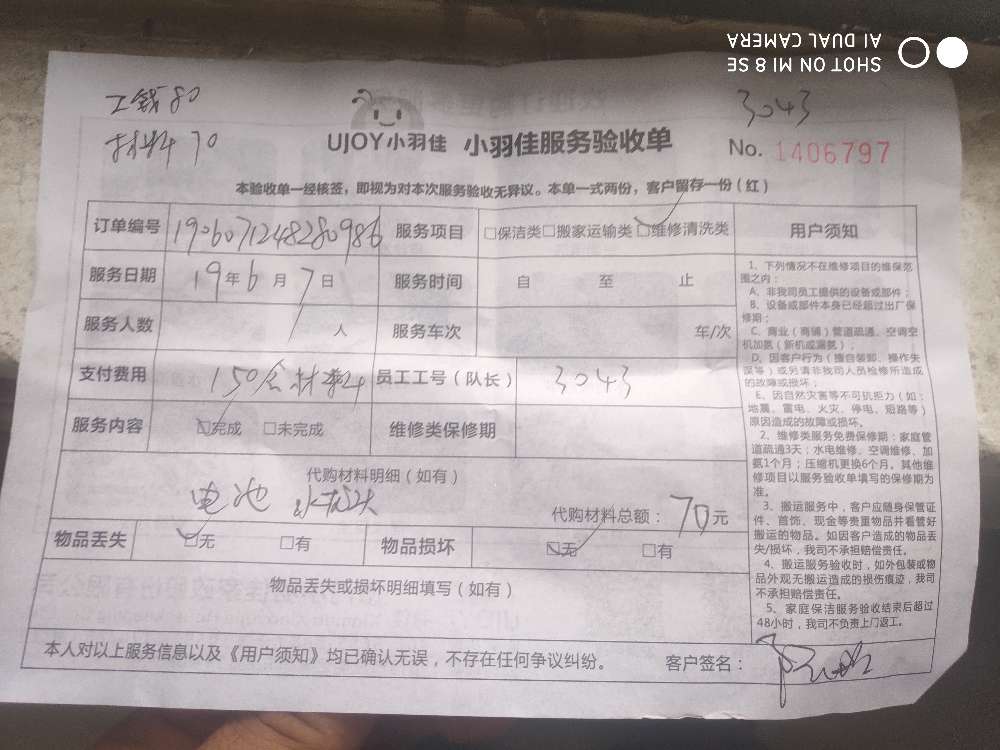 SHOT ON MI 8 SE
AI DUAL CAMERA
工钱80
材料70
3043
UJOY小羽佳 小羽佳服务验收单
No. 1406797
本验收单一经核签，即视为对本次服务验收无异议。本单一式两份，客户留存一份（红）
订单编号 1906071248280986 服务项目 □保洁类□搬家运输类□维修清洗类
服务日期 19年6月7日 服务时间 自 至 止
服务人数 人 服务车次 车/次
支付费用 150含材料 员工工号（队长） 3043
服务内容 □完成 □未完成 维修类保修期
代购材料明细（如有）
电池 水龙头
代购材料总额：70元
物品丢失 □无 □有 物品损坏 □无 □有
物品丢失或损坏明细填写（如有）
本人对以上服务信息以及《用户须知》均已确认无误，不存在任何争议纠纷。 客户签名：
用户须知
1、下列情况不在维修项目的维保范
围之内：
A、非我司员工提供的设备或部件；
B、设备或部件本身已经超过出厂保
修期；
C、商业（商铺）管道疏通、空调空
机加氨（新机或漏氨）；
D、因客户行为（擅自装卸、操作失
误等）或另请非我司人员检修所造成
的故障或损坏；
E、因自然灾害等不可抗拒力（如：
地震、雷电、火灾、停电、短路等）
原因造成的故障或损坏。
2、维修类服务免费保修期：家庭管
道疏通3天；水电维修、空调维修、加
氨1个月；压缩机更换6个月。其他维
修项目以服务验收单填写的保修期为
准。
3、搬运服务中，客户应随身保管证
件、首饰、现金等贵重物品并看管好
搬运的物品。如因客户造成的物品丢
失/损坏，我司不承担赔偿责任。
4、搬运服务验收时，如外包装或物
品外观无搬运造成的损伤痕迹，我司
不承担赔偿责任。
5、家庭保洁服务验收结束后超过
48小时，我司不负责上门返工。